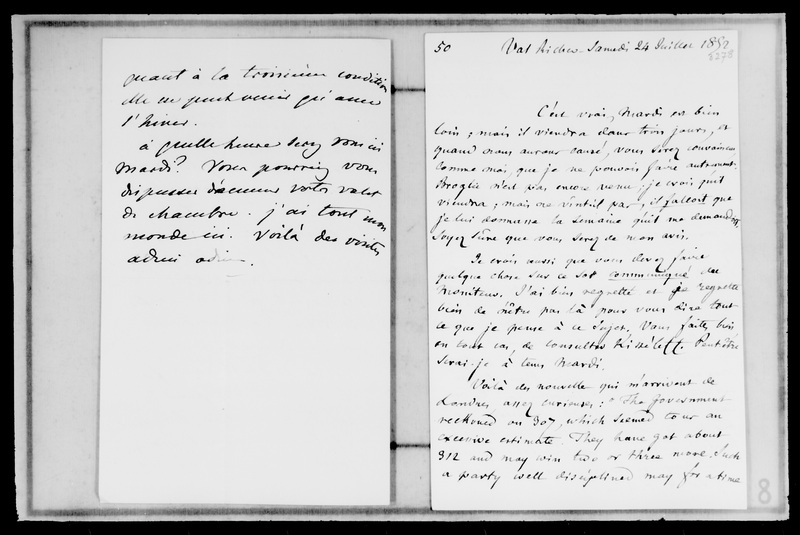 quant à la troisième condition
elle ne peut venir qu'avec
l'hiver.
à quelle heure serez vous ici
Mardi? Vous pourriez vous
dispenser d'amener votre valet
de chambre. j'ai tout mon
monde ici. Voilà des visites
adieu adieu.
50 Val Richer - Samedi 24 Juillet 1852
5278
C'est vrai, Mardi est bien
loin; mais il viendra dans trois jours, et
quand nous aurons causé, vous serez convaincue
comme moi, que je ne pouvois faire autrement.
Broglie n'est pas encore venu; je crois qu'il
viendra; mais ne vint-il pas, il falloit que
je lui donnasse la semaine qu'il me demandoit.
Soyez sûre que vous serez de mon avis.
Je crois aussi que vous devez faire
quelque chose sur ce sot communiqué du
Moniteur. J'ai bien regretté et je regrette
bien de n'être pas là pour vous dire tout
ce que je pense à ce sujet. Vous faites bien
en tout cas, de consulter Kisséleff. Peut-être
serai-je à tems Mardi.
Voilà des nouvelles qui m'arrivent de
Londres, assez curieuses: "The government
reckoned on 307, which seemed to us an
excessive estimate. They have got about
312 and may win two or three more. Such
a party well disciplined may for a time
8